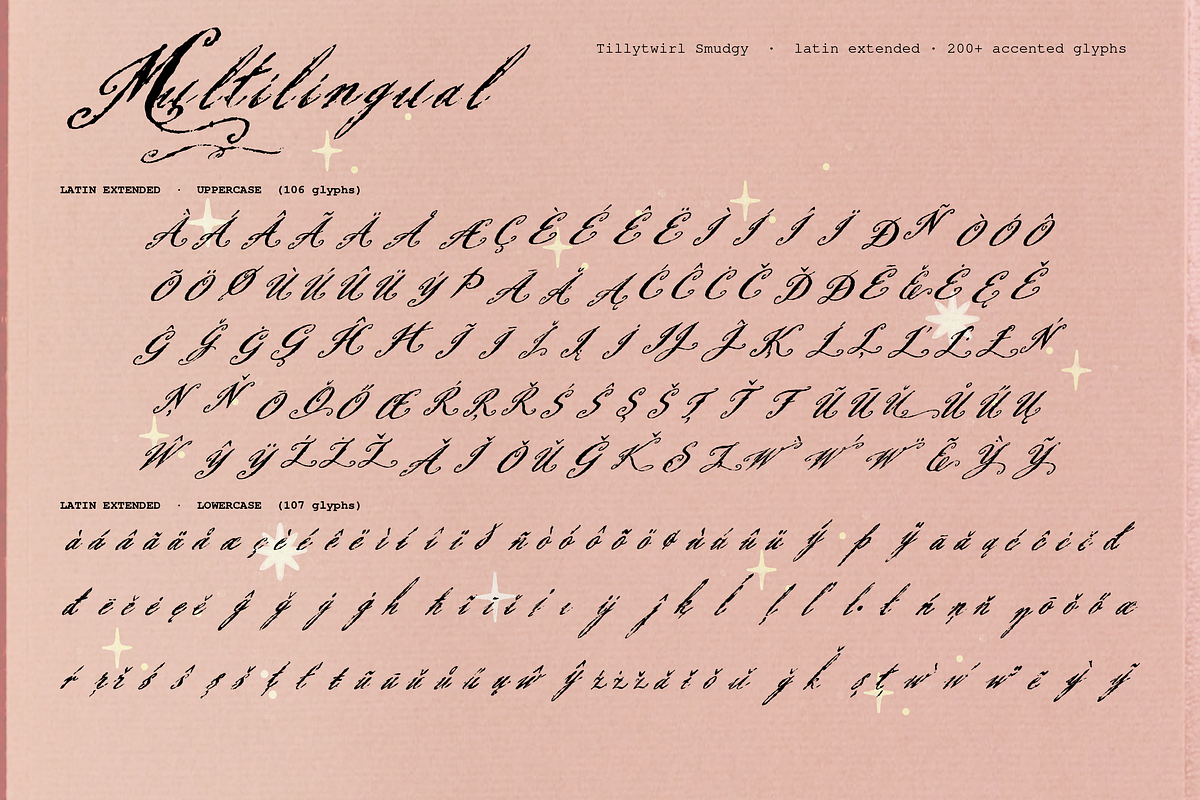 Multilingual
Tillytwirl Smudgy · latin extended · 200+ accented glyphs
LATIN EXTENDED · UPPERCASE (106 glyphs)
À Á Â Ã Ä Å Æ Ç È É Ê Ë Ì Í Î Ï Đ Ñ Ò Ó Ô
Õ Ö Ø Ù Ú Û Ü Ý Þ Ā Ă Ą Ć Ĉ Ċ Č Ď Đ Ē Ĕ Ė Ę Ě
Ĝ Ğ Ġ Ģ Ĥ Ħ Ĩ Ī Ĭ Į İ IJ Ĵ Ķ Ĺ Ļ Ľ Ŀ Ł Ń
Ņ Ň Ō Ŏ Ő Œ Ŕ Ŗ Ř Ś Ŝ Ş Š Ţ Ť Ŧ Ũ Ū Ŭ Ů Ű Ų
Ŵ Ŷ Ÿ Ź Ż Ž Ǎ Ǐ Ǒ Ǔ Ǧ Ǩ Ẁ Ẃ Ẅ Ẽ Ỳ Ỹ
LATIN EXTENDED · LOWERCASE (107 glyphs)
à á â ã ä å æ ç è é ê ë ì í î ï ð ñ ò ó ô õ ö ø ù ú û ü ý þ ÿ ā ă ą ć ĉ ċ č ď
đ ē ĕ ė ę ě ĝ ğ ġ ģ ĥ ħ ĩ ī ĭ į ı ij ĵ ķ ĺ ļ ľ ŀ ł ń ņ ň ŋ ō ŏ ő œ
ŕ ŗ ř ś ŝ ş š ţ ť ŧ ũ ū ŭ ů ű ų ŵ ŷ ź ż ž ǎ ǐ ǒ ǔ ǧ ǩ ș ț ẁ ẃ ẅ ẽ ỳ ỹ